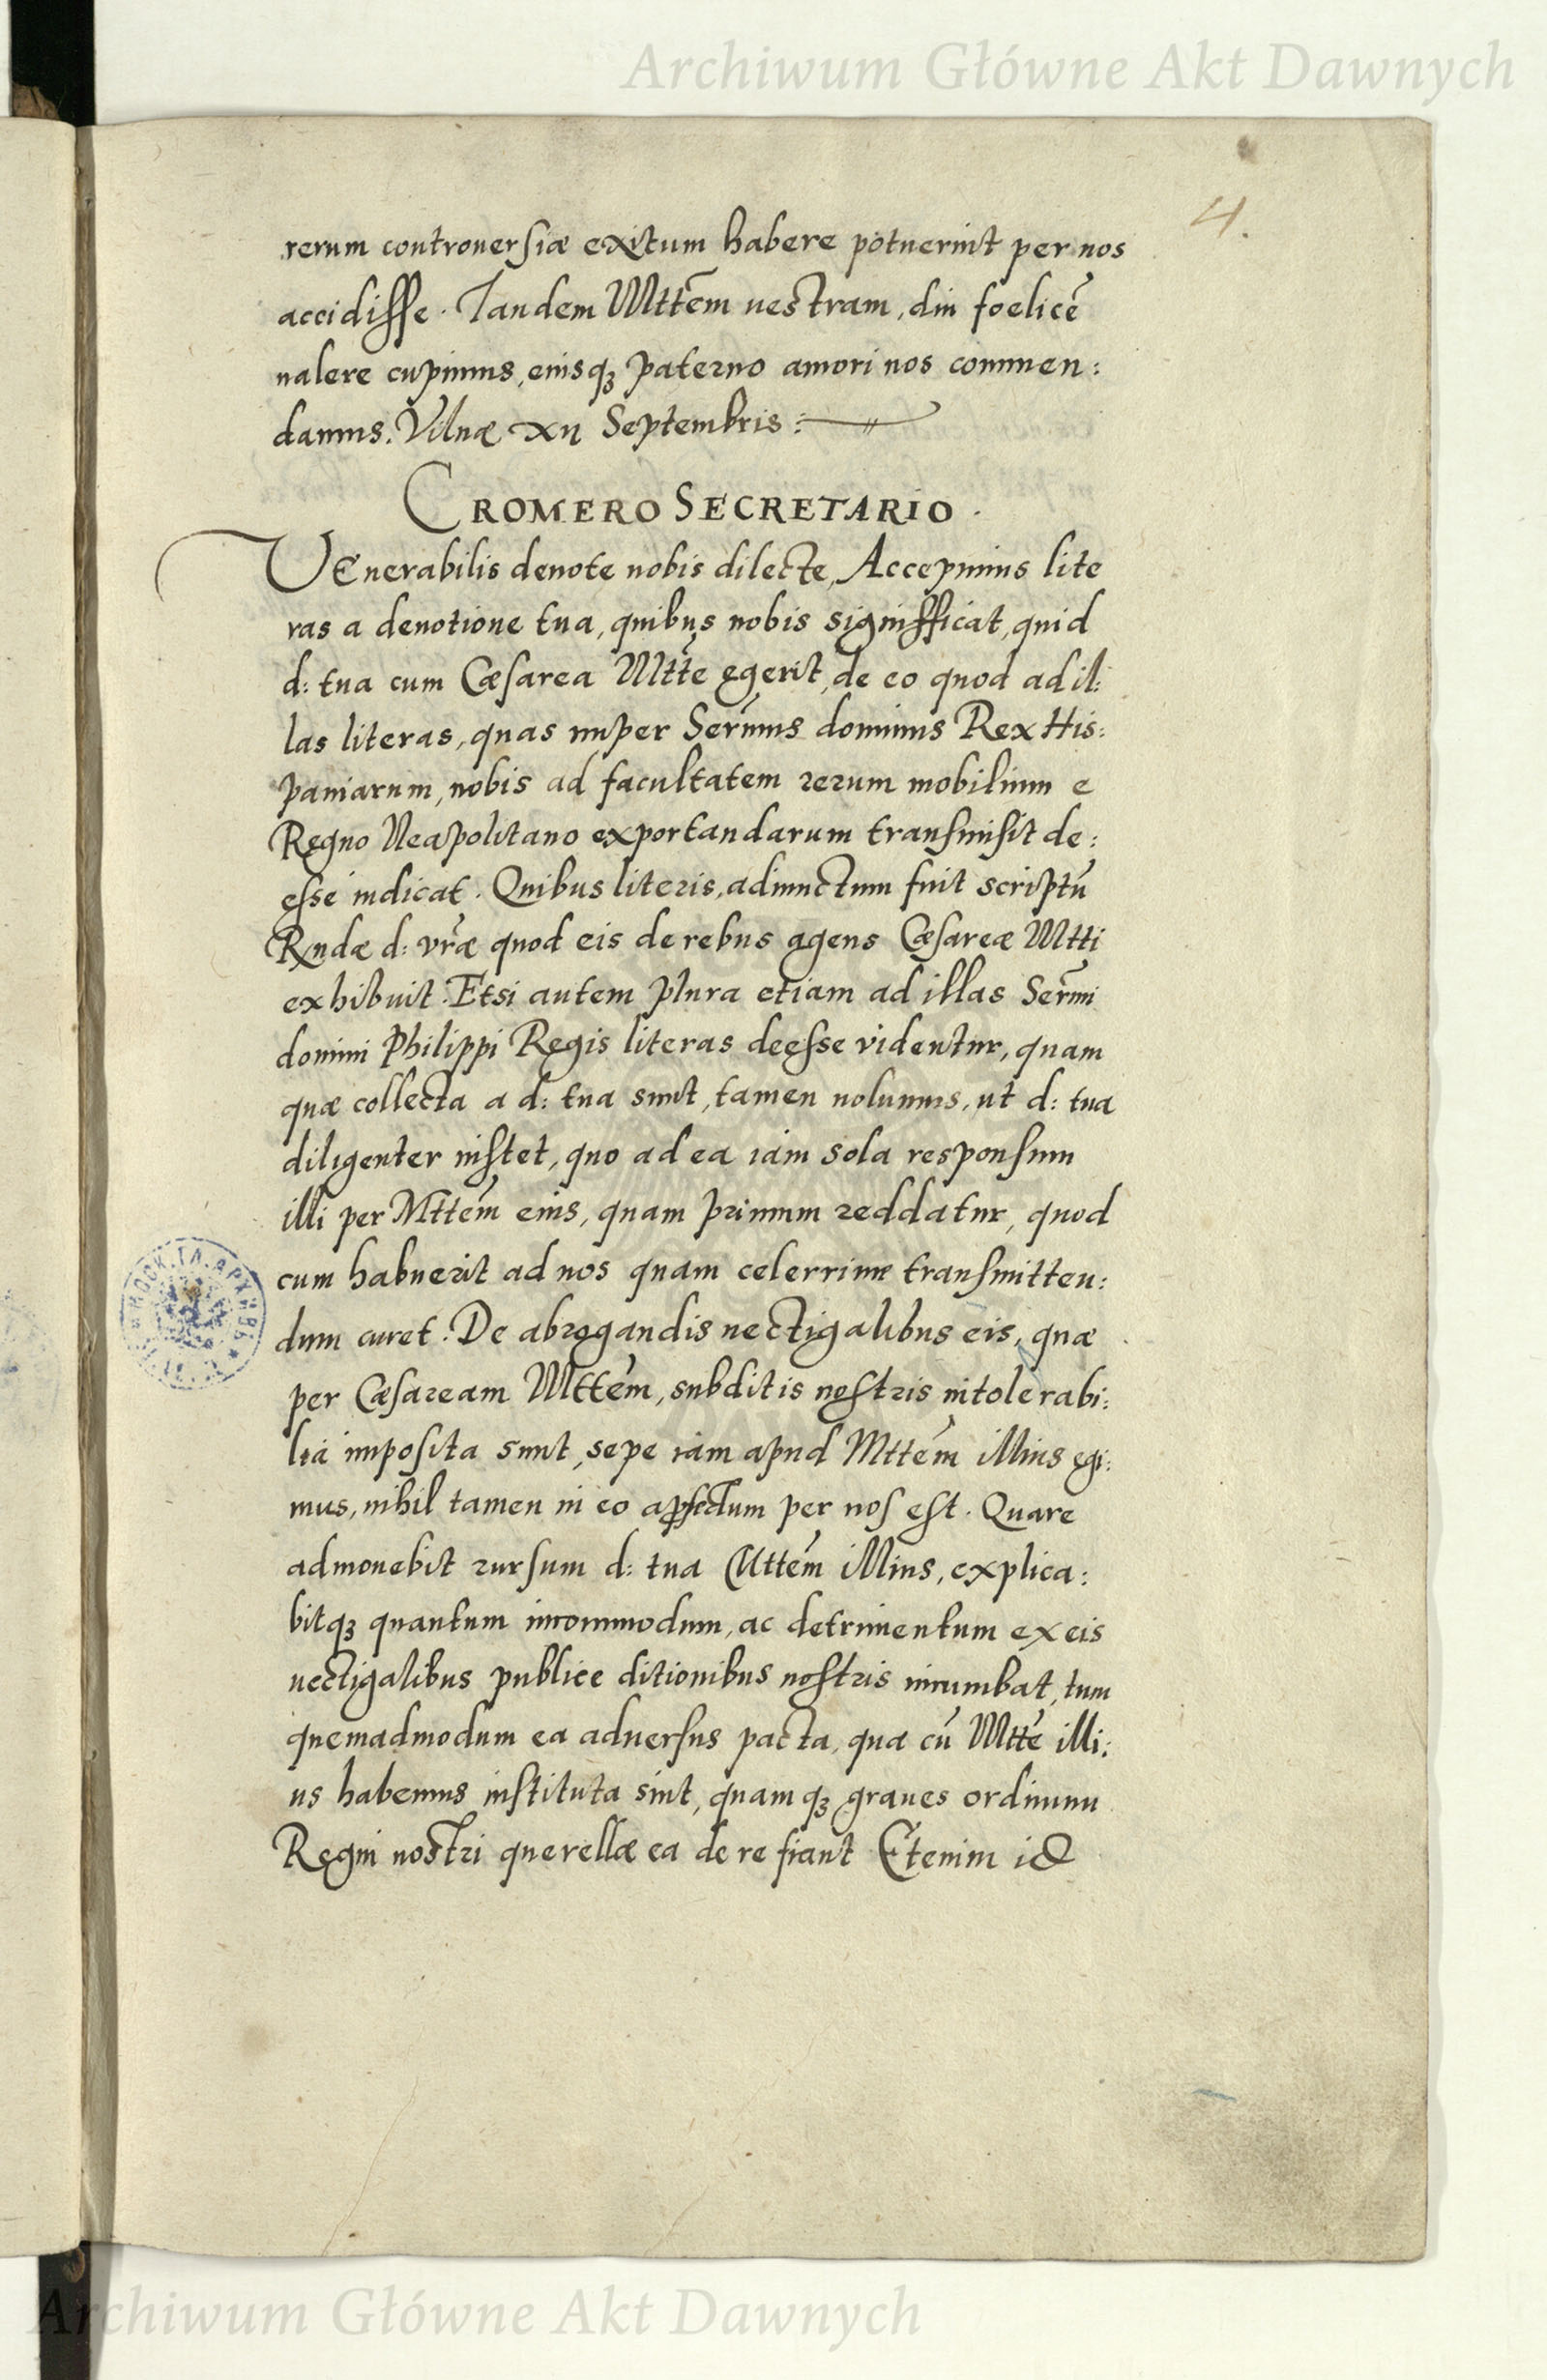 Archiwum Główne Akt Dawnych
4.
rerum controuersiæ exitum habere potuerint per nos
accidisse. Tandem Mttem uestram, diu foelicē
ualere cupimus, eiusq; paterno amori nos commen:
damus. Vilnæ XII Septembris:
CROMERO SECRETARIO.
VEnerabilis deuote nobis dilecte, Accepimus lite
ras a deuotione tua, quibus nobis signifficat, quid
d: tua cum Cæsarea Mtte egerit, de eo quod ad il:
las literas, quas nuper Sermus dominus Rex His:
paniarum, nobis ad facultatem rerum mobilium e
Regno Neapolitano exportandarum transmisit de:
esse indicat. Quibus literis, adiunctum fuit scriptū
Rndæ d: vræ quod eis de rebus agens Cæsareæ Mtti
exhibuit. Etsi autem plura etiam ad illas Sermi
domini Philippi Regis literas deesse videntur, quam
quæ collecta a d: tua sunt, tamen uolumus, ut d: tua
diligenter instet, quo ad ea iam sola responsum
illi per Mttem eius, quam primum reddatur, quod
cum habuerit ad nos quam celerrime transmitten:
dum curet. De abrogandis uectigalibus eis, quæ
per Cæsaream Mttem, subditis nostris intolerabi:
lia imposita sunt, sepe iam apud Mttem illius egi:
mus, nihil tamen in eo per nos est. Quare
admonebit rursum d: tua Mttem illius, explica:
bitq; quantum incommodum, ac detrimentum ex eis
uectigalibus publice ditionibus nostris incumbat, tum
quemadmodum ea aduersus pacta, qua cū Mtte illi:
us habemus instituta sint, quamq; graues ordinum
Regni nostri querellæ ea de re fiant Etenim id
Archiwum Główne Akt Dawnych